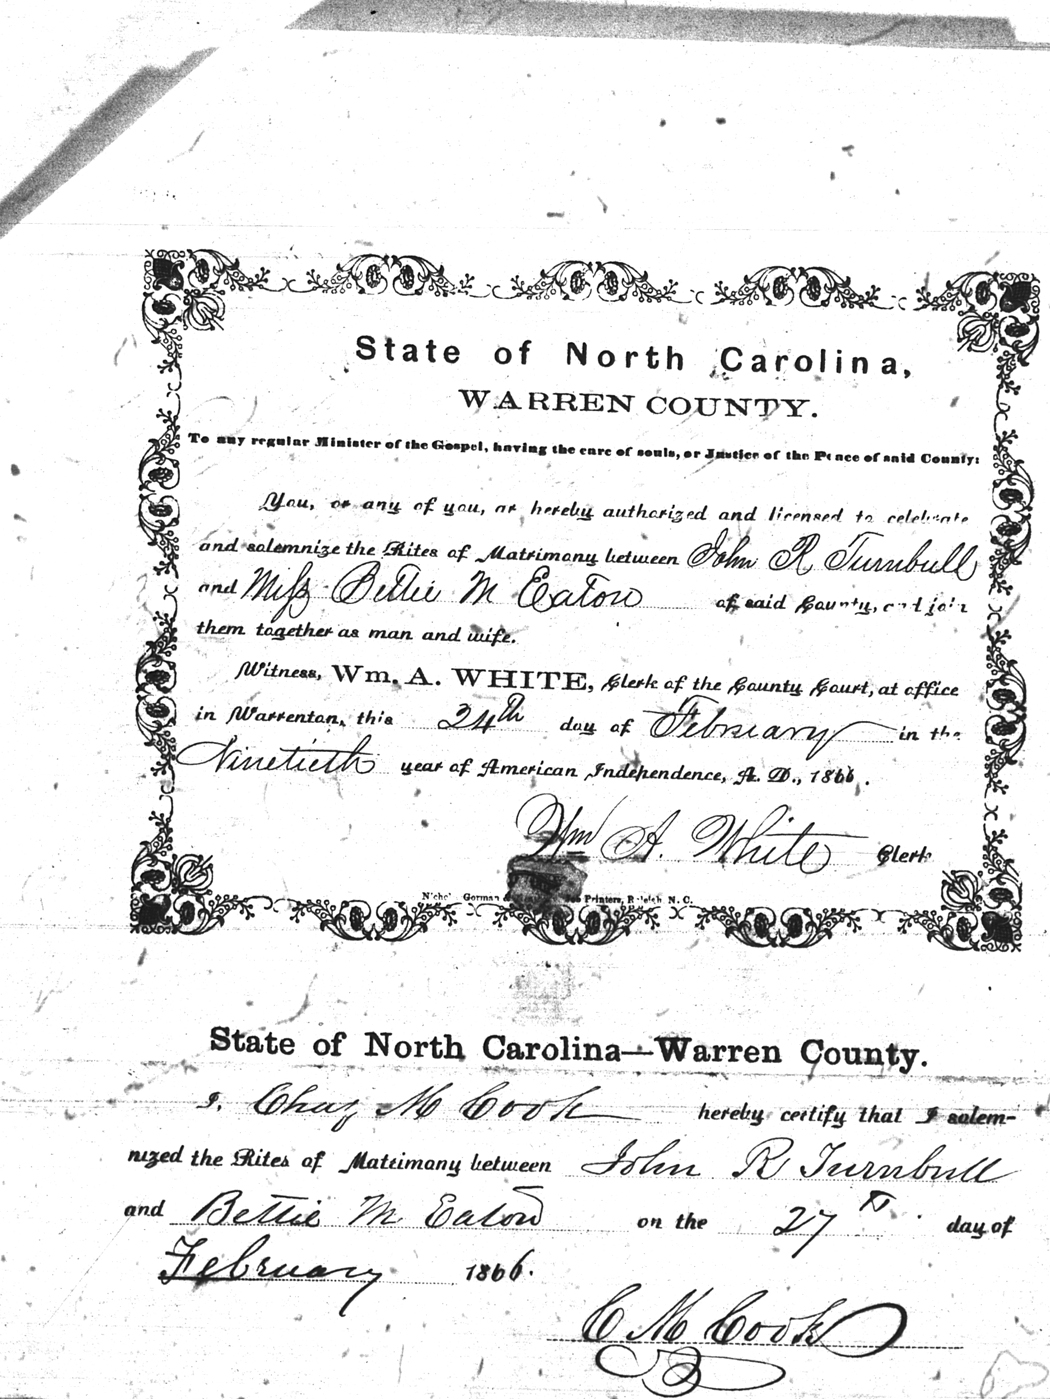 State of North Carolina,
WARREN COUNTY.
To any regular Minister of the Gospel, having the care of souls, or Justice of the Peace of said County:
You, or any of you, ar hereby authorized and licensed to celebrate
and solemnize the Rites of Matrimony between John R Turnbull
and Miss Bettie M Eaton of said County, and join
them together as man and wife.
Witness, Wm. A. WHITE, Clerk of the County Court, at office
in Warrenton, this 24th day of February in the
Ninetieth year of American Independence, A. D., 1866.
Wm A. White Clerk
Gorman & Printers, Raleigh N. C.
State of North Carolina—Warren County.
I, Chas M Cook hereby certify that I solem-
nized the Rites of Matrimony between John R Turnbull
and Bettie M Eaton on the 27th day of
February 1866.
C M Cook